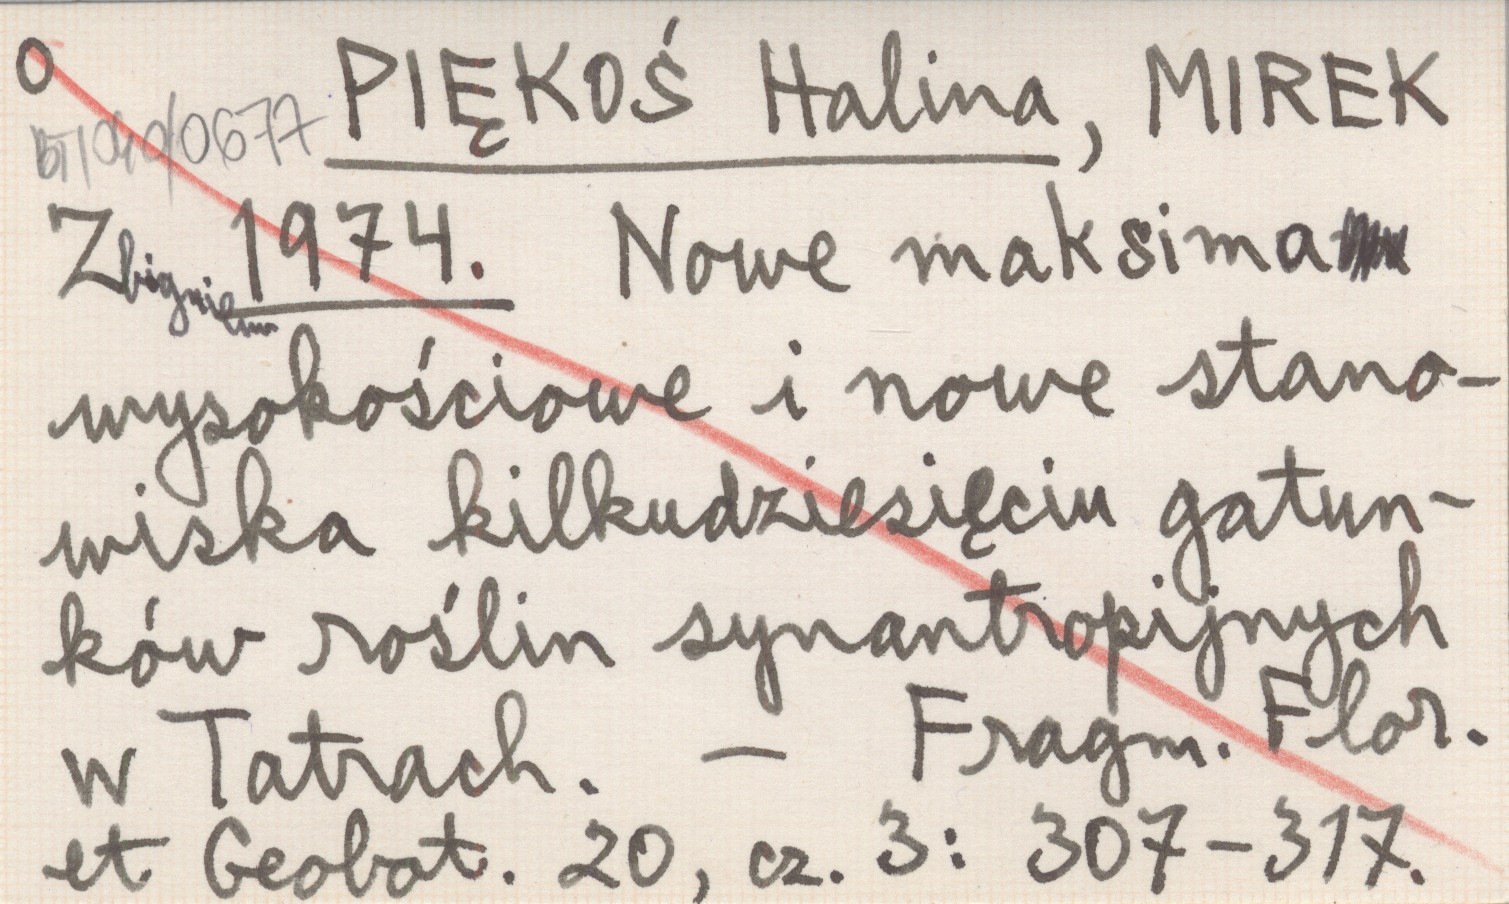 O PIĘKOŚ Halina, MIREK
0677
Zbigniew 1974. Nowe maksima
wysokościowe i nowe stano-
wiska kilkudziesięciu gatun-
ków roślin synantropijnych
w Tatrach. — Fragm. Flor.
et Geobot. 20, cz. 3: 307-317.